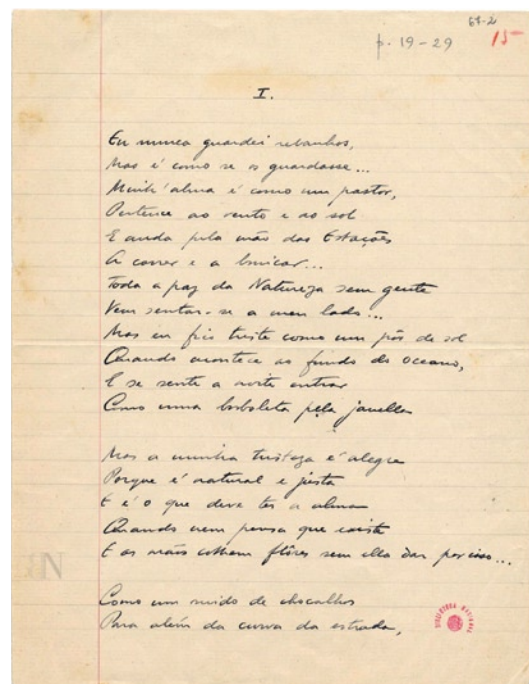 68-2
p. 19-29
15
I.
Eu nunca guardei rebanhos,
Mas é como se os guardasse...
Minh'alma é como um pastor,
Pertence ao vento e ao sol
E anda pela mão das Estações
A correr e a brincar...
Toda a paz da Natureza sem gente
Vem sentar-se a meu lado...
Mas eu fico triste como um pôr de sol
Quando acontece ao fundo do oceano,
E se sente a noite entrar
Como uma borboleta pela janella
Mas a minha tristeza é alegre
Porque é natural e justa
E é o que deve ter a alma
Quando nem pensa que existe
E as mãos colhem flôres sem ella dar por isso...
Como um ruido de chocalhos
Para além da curva da estrada,